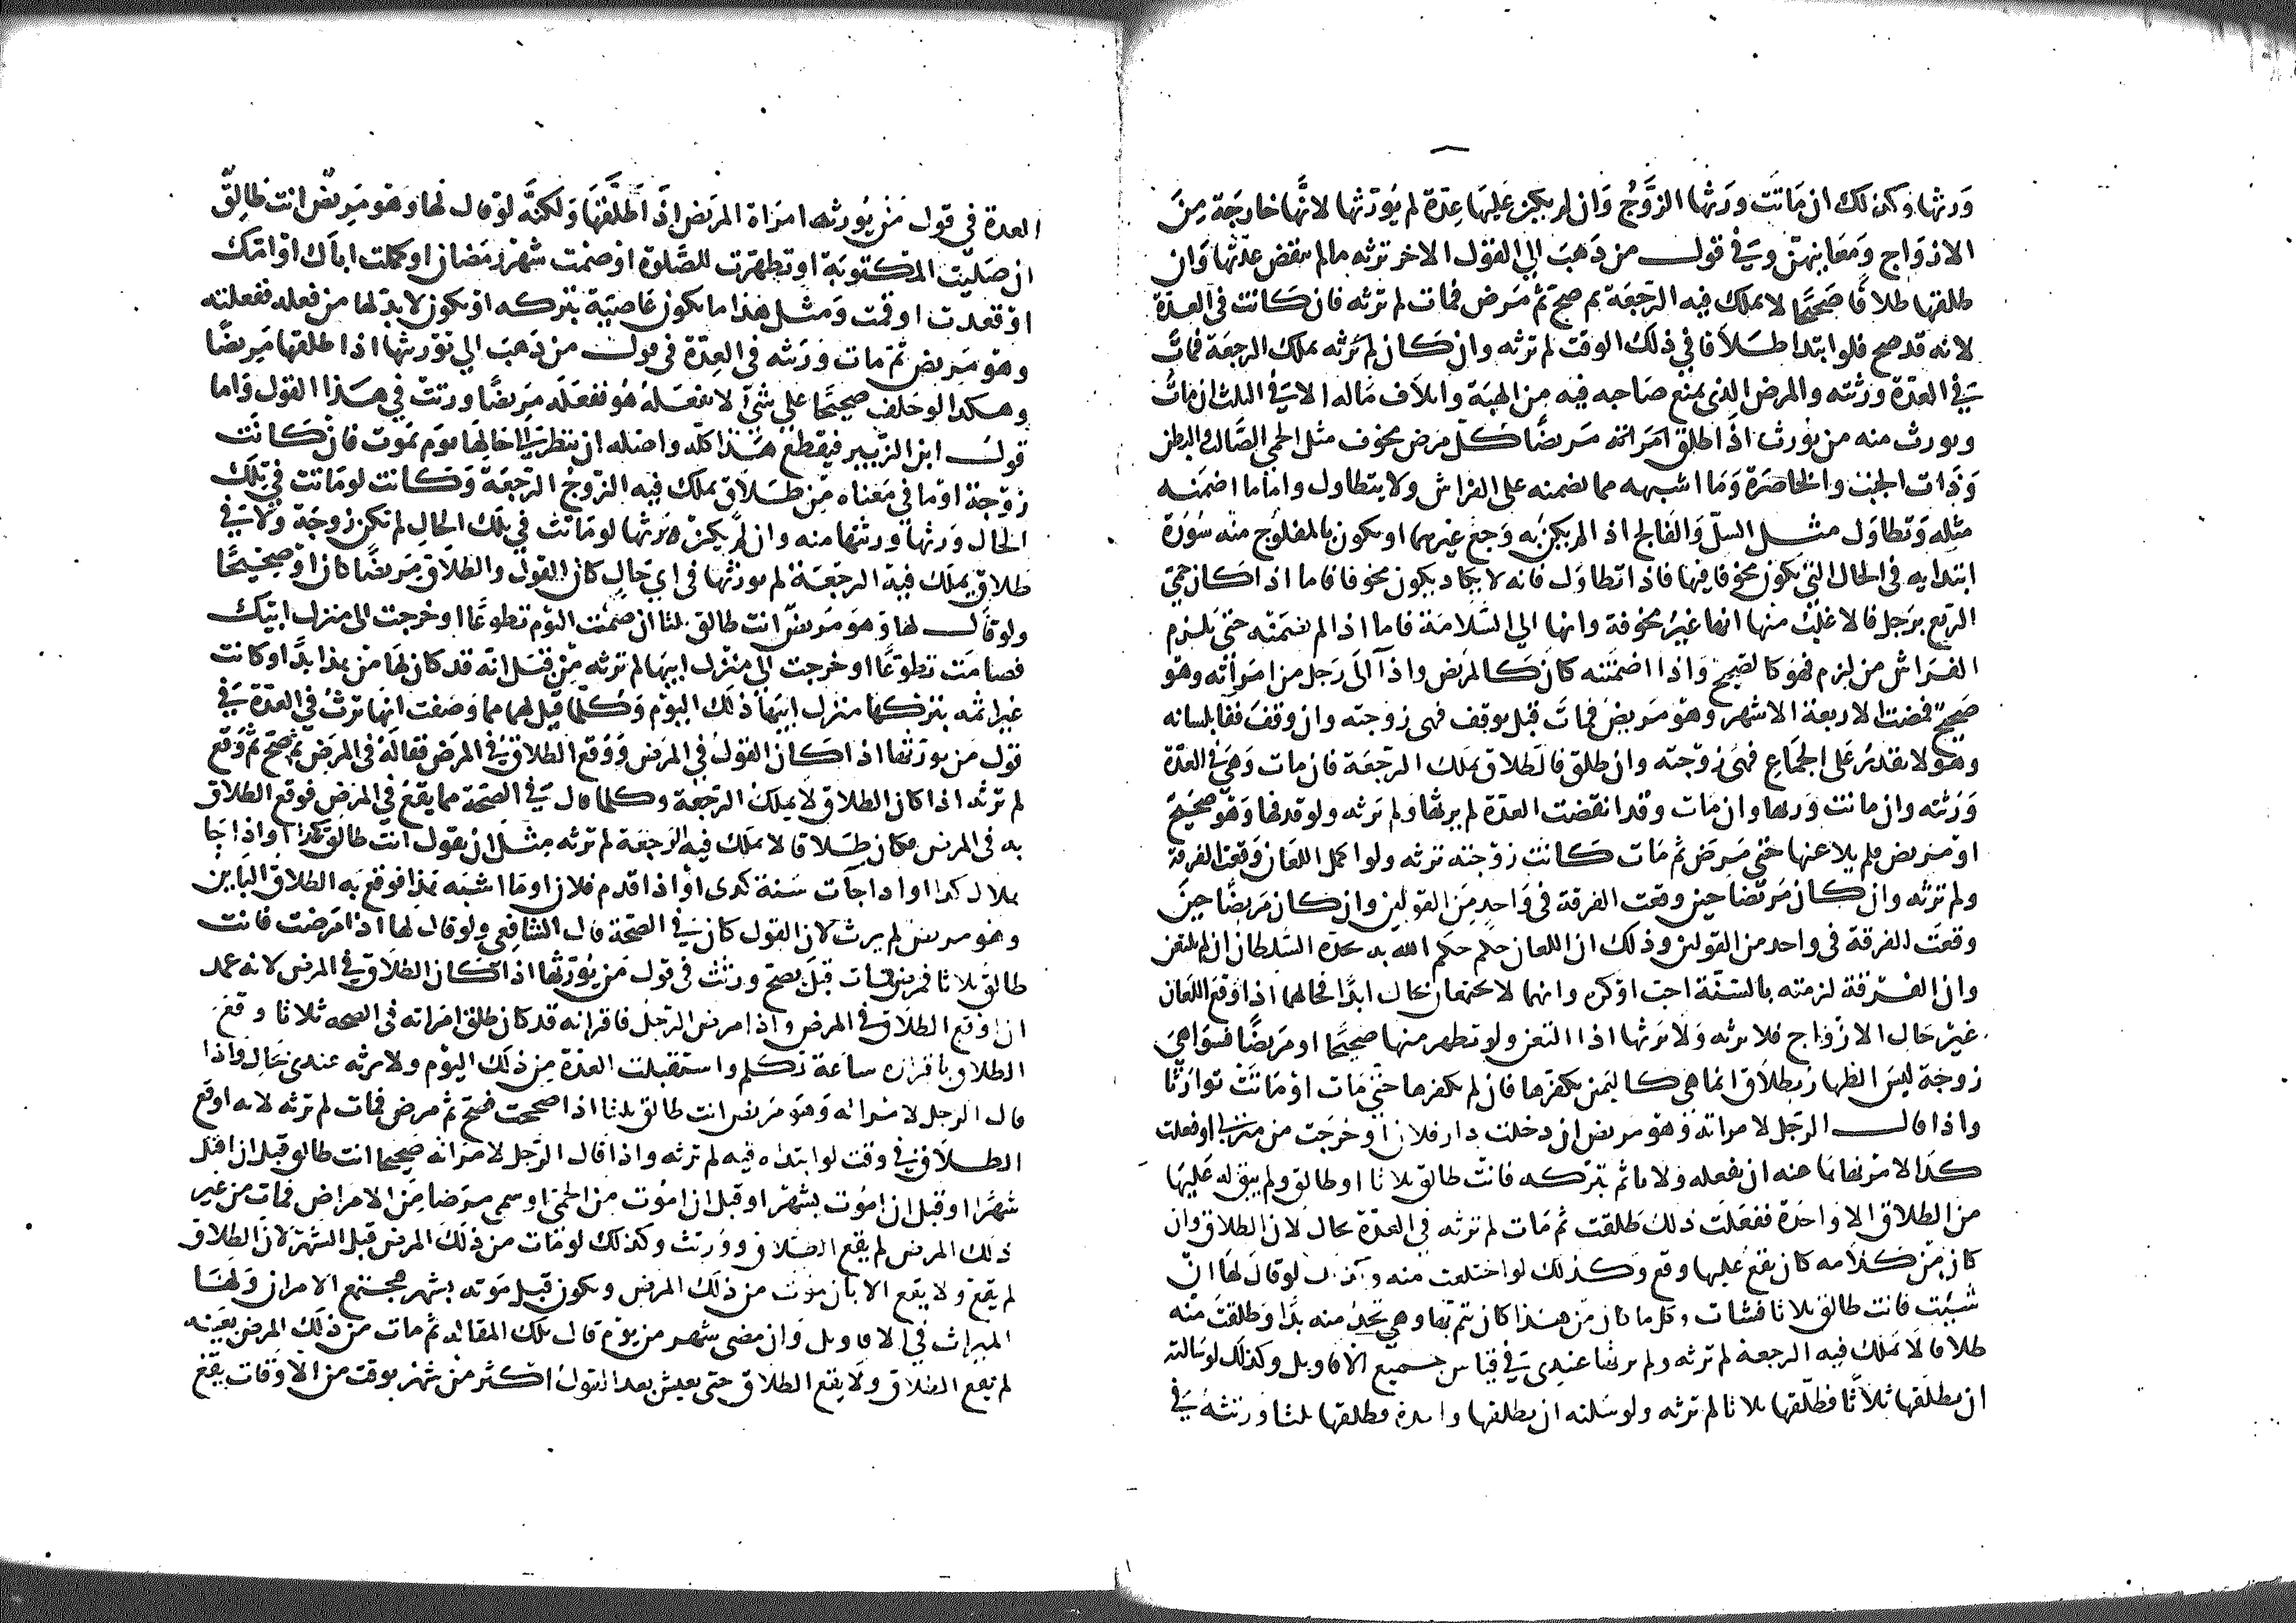 ورثها وكذلك ان ماتت ورثها الزوج وان لم يكن عليها عدة لم يورثها لانها خارجة من
الازواج ومعانيهن وفي قول من ذهب الى القول الاخر ترثه مالم تنقض عدتها وان
طلقها طلاقا صحيحا لا يملك فيه الرجعة ثم صح ثم مرض فمات لم ترثه فان كانت في العدة
لانه قد صح فلو ابتدا طلاقا في ذلك الوقت لم ترثه وان كان لم ترثه يملك الرجعة فمات
في العدة ورثته والمرض الذي يمنع صاحبه فيه من الهبة واتلاف ماله الا في الثلث ان مات
ويورث منه من يورث اذا طلق امراته مريضا كل مرض مخوف مثل الحمى الصالب والبطن
وذات الجنب والخاصرة وما اشبهه مما يضمنه على الفراش ولا يتطاول واما ما اضمنه
مثله وتطاول مثل السل والفالج اذا لم يكن به وجع غيرهما او يكون بالمفلوج منه سورة
ابتدايه في الحال التي يكون مخوفا فيها فاذا تطاول فانه لا يكاد يكون مخوفا فاما اذا كان حمى
الربع برجل فالاغلب منها انها غير مخوفة وانها الى السلامة فاما اذا لم يضمنه حتى يلزم
الفراش من لزم فهو كالصحيح واذا اضمنته كان كالمريض واذا آلى رجل من امراته وهو
صحيح فمضت الاربعة الاشهر وهو مريض فمات قبل يوقف فهى زوجته وان وقف ففا بلسانه
وهو لا يقدر على الجماع فهى زوجته وان طلق فالطلاق يملك الرجعة فان مات وهي في العدة
ورثته وان ماتت ورثها وان مات وقد انقضت العدة لم يرثها ولم ترثه ولو قذفها وهو صحيح
او مريض فلم يلاعنها حتى مرض ثم مات كانت زوجته ترثه ولو اكمل اللعان وقعت الفرقة
ولم ترثه وان كان مريضا حين وقعت الفرقة في واحد من القولين وان كان مريضا حين
وقعت الفرقة في واحد من القولين وذلك ان اللعان حكم حكم الله به يحده السلطان ان لم يلتعن
وان الفرقة لزمته بالسنة احب او كره وانهما لا يجتمعان بحال ابدا فحالهما اذا وقع اللعان
غير حال الازواج فلا ترثه ولا يرثها اذا التعن ولو تظهر منها صحيحا او مريضا فسوا هي
زوجة ليس الظهار بطلاق انما هي كاليمين يكفرها فان لم يكفرها حتى مات او ماتت توارثا
واذا قال الرجل لامراته وهو مريض ان دخلت دار فلان او خرجت من منزلي او فعلت
كذا لامر نهاها عنه ان تفعله ولا تاثم بتركه فانت طالق ثلاثا او طالق ولم يبق له عليها
من الطلاق الا واحدة ففعلت ذلك فطلقت ثم مات لم ترثه في العدة بحال لان الطلاق وان
كان من كلامه كان يقع عليها وقع وكذلك لو اختلعت منه وكذلك لو قال لها ان
شيت فانت طالق ثلاثا فشات وكل ما كان من هذا كان يتم بها وهي تجد منه بدا وطلقت منه
طلاقا لا يملك فيه الرجعة لم ترثه ولم يرثها عندي في قياس جميع الاقاويل وكذلك لو سالته
ان يطلقها ثلاثا فطلقها ثلاثا لم ترثه ولو سلته ان يطلقها واحدة فطلقها ثلثا ورثته في
العدة في قول من يورثه امراة المريض اذا طلقها ولكنه لو قال لها وهو مريض انت طالق
ان صليت المكتوبة او تطهرت للصلوة او صمت شهر رمضان او كلمت اباك او امك
او قعدت او قمت ومثل هذا ما يكون عاصية بتركه او يكون لا بد لها من فعله ففعلته
وهو مريض ثم مات ورثته في العدة في قول من ذهب الى توريثها اذا طلقها مريضا
وهكذا لو حلف صحيحا على شي لا يفعله هو ففعله مريضا ورثت في هذا القول واما
قول ابن الزبير فيقطع هذا كله واصله ان ينظر الى حالها يوم يموت فان كانت
زوجة او ما في معناه من طلاق يملك فيه الزوج الرجعة وكانت لو ماتت في تلك
الحال ورثها ورثتها منه وان لم يكن يرثها لو ماتت في تلك الحال لم تكن زوجة ولا في
طلاق يملك فيه الرجعة لم يورثها في اي حال كان القول والطلاق مريضا كان او صحيحا
ولو قال لها وهو مريض انت طالق ثلثا ان صمت اليوم تطوعا او خرجت الى منزل ابيك
فصامت تطوعا او خرجت الى منزل ابيها لم ترثه من قبل انه قد كان لها من هذا بدا وكانت
غير اثمة بتركها منزل ابيها ذلك اليوم وكلما قيل لهما مما وصفت انها ترث في العدة في
قول من يورثها اذا كان القول في المرض ووقع الطلاق في المرض فقاله في المرض ثم صح ثم وقع
لم ترثه اذا كان الطلاق لا يملك الرجعة وكلما قال في الصحة مما يقع في المرض فوقع الطلاق
به في المرض فكان طلاقا لا يملك فيه الرجعة لم ترثه مثل ان يقول انت طالق كذا واذا جا
هلال كذا او اذا جآت سنة كذى او اذا قدم فلان او ما اشبه هذا فوقع به الطلاق الباين
وهو مريض لم يرث لان القول كان في الصحة قال الشافعى ولو قال لها اذا مرضت فانت
طالق ثلاثا فمرض فمات قبل يصح ورثت في قول من يورثها اذا كان الطلاق في المرض لانه عمد
ان اوقع الطلاق في المرض واذا مرض الرجل فاقر انه قد كان طلق امراته في الصحه ثلاثا وقع
الطلاق باقراره ساعة تكلم واستقبلت العدة من ذلك اليوم ولا ترثه عندى بحال واذا
قال الرجل لامراته وهو مريض انت طالق ثلثا اذا صححت فصح ثم مرض فمات لم ترثه لانه اوقع
الطلاق في وقت لو ابتداه فيه لم ترثه واذا قال الرجل لامراته صحيحا انت طالق قبل ان اقتل
شهرا او قبل ان اموت بشهر او قبل ان اموت من الحمى او سمى مرضا من الامراض فمات من غير
ذلك المرض لم يقع الطلاق وورثت وكذلك لو مات من ذلك المرض قبل الشهر لان الطلاق
لم يقع ولا يقع الا بان يموت من ذلك المرض ويكون قبل موته بشهر فيجتمع الامران ولها
الميراث في الاقاويل وان مضى شهر من يوم قال تلك المقاله ثم مات من ذلك المرض بعينه
لم يقع الطلاق ولا يقع الطلاق حتى يعيش بعد القول اكثر من شهر بوقت من الاوقات يقع